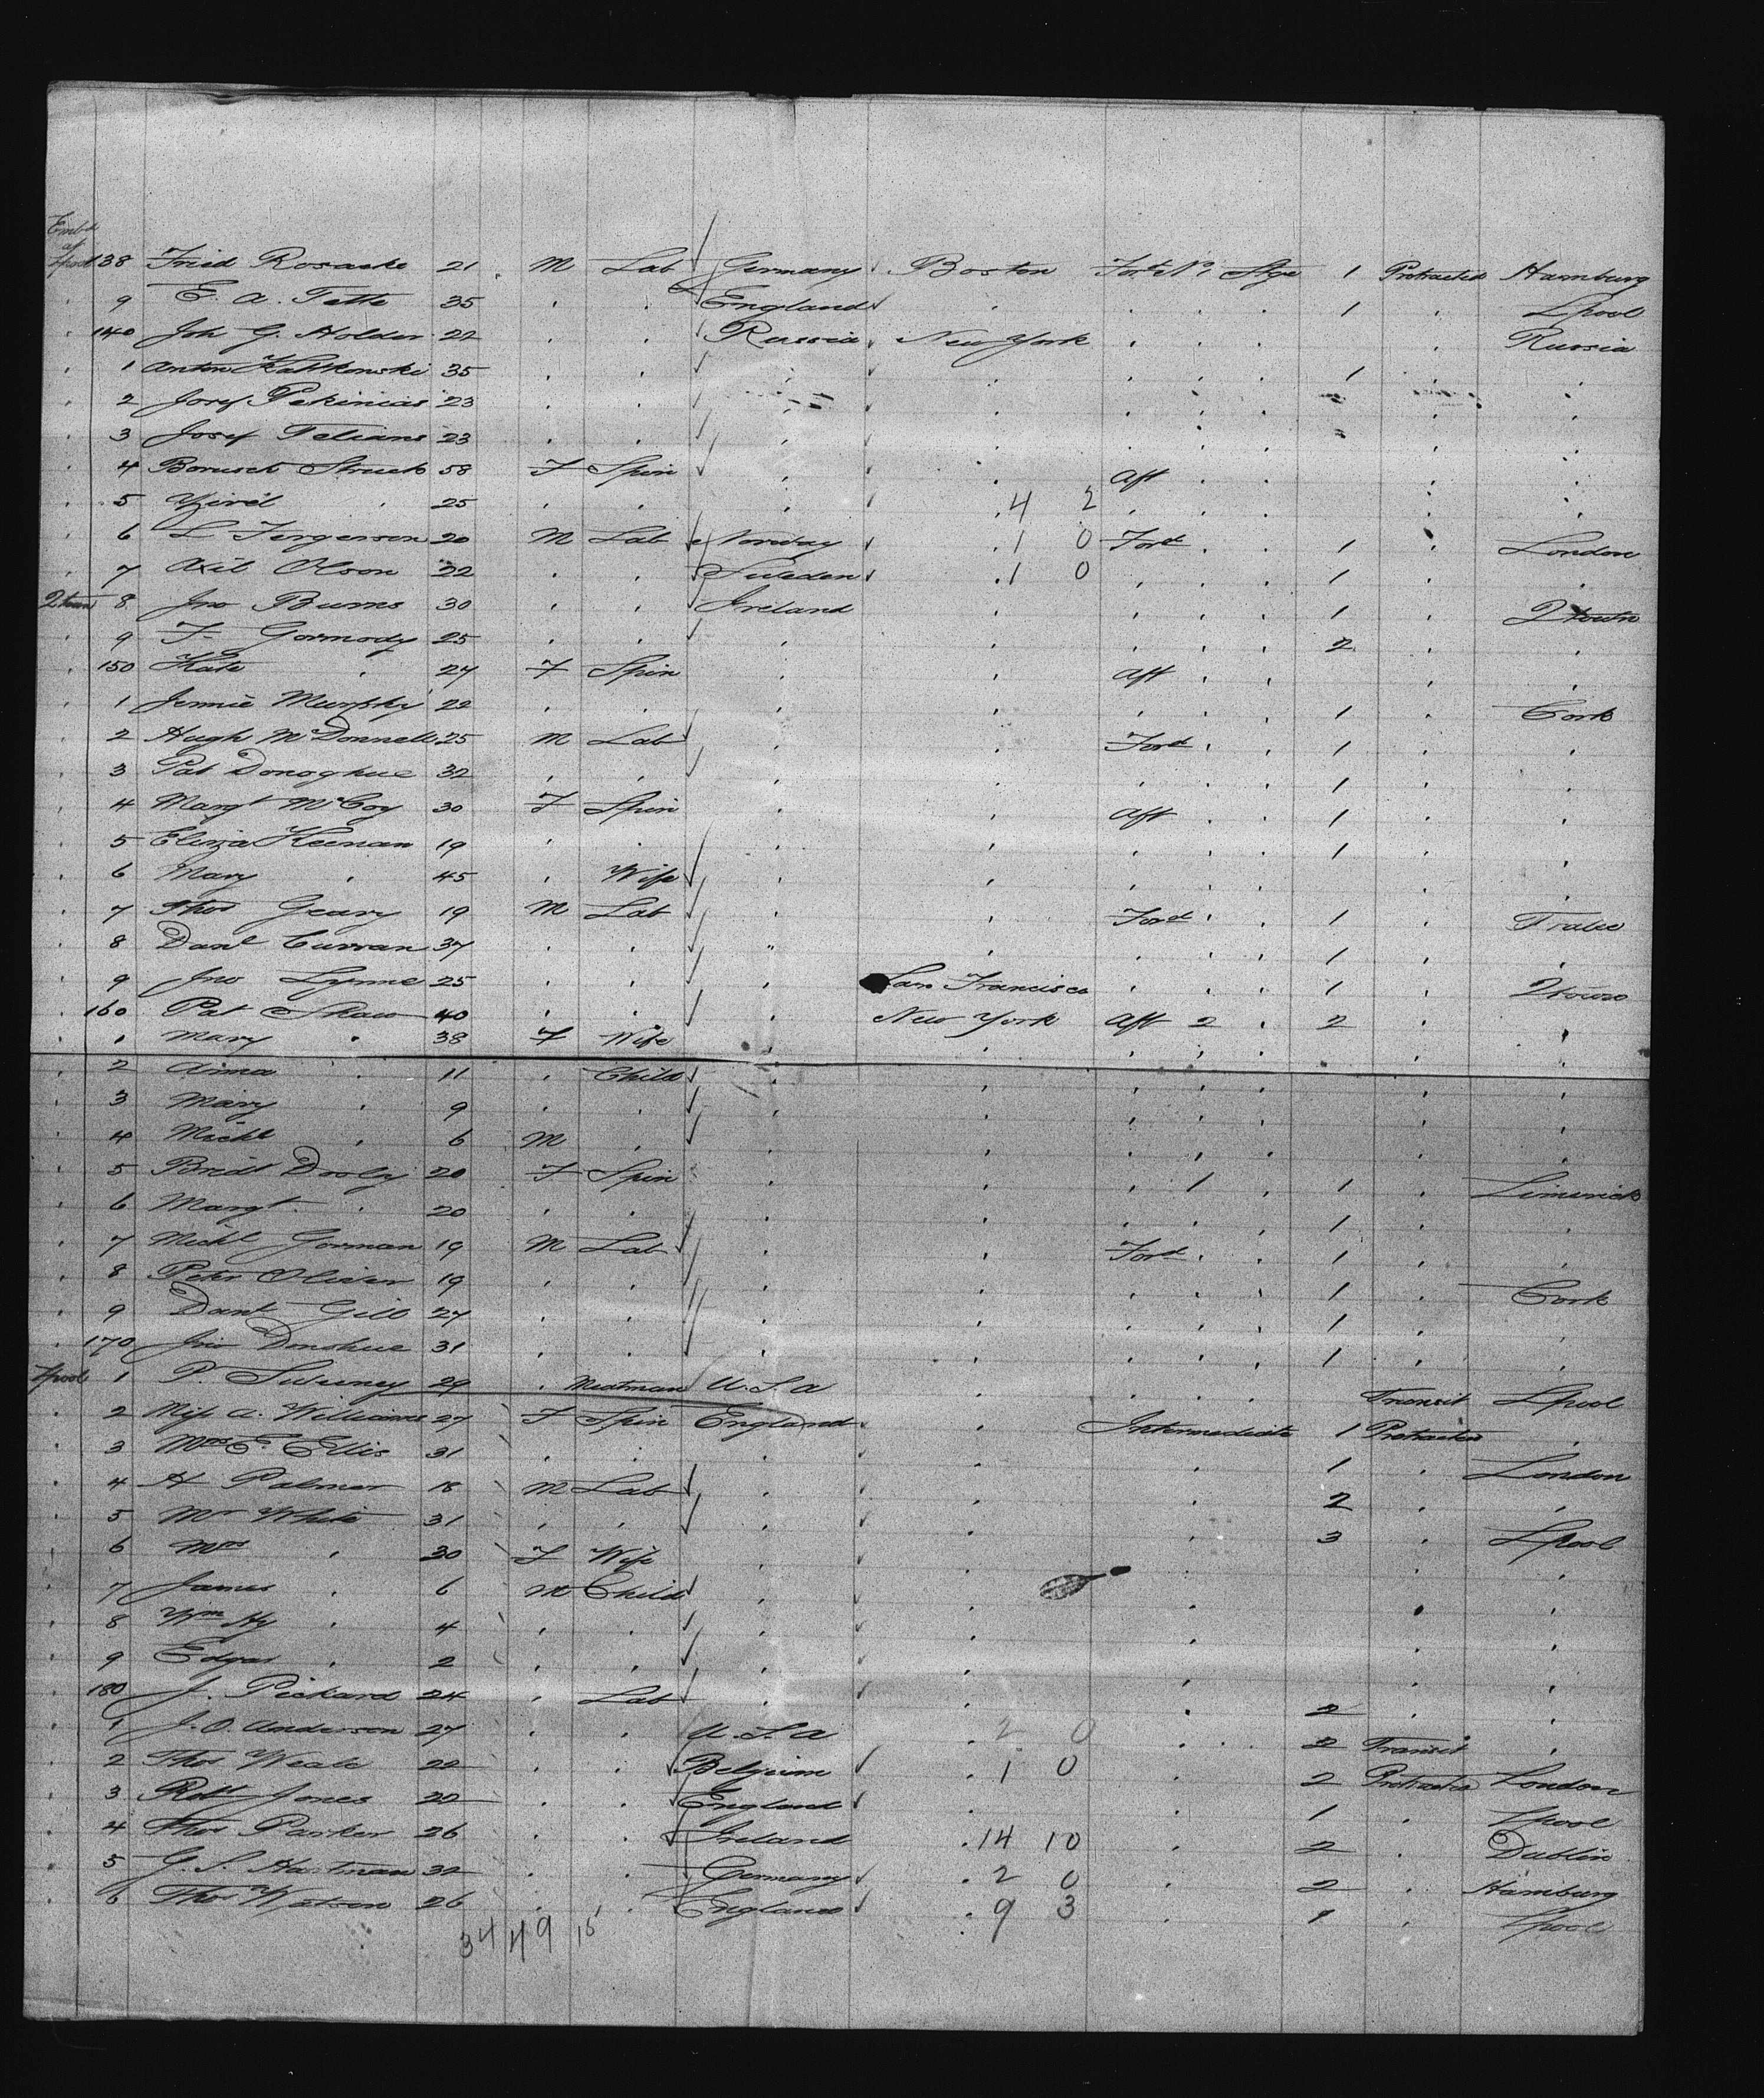 Embd
at
Lpool 138 Fried Rosacke 21 M Lab Germany Boston Ford No 1 Stge 1 Protracted Hamburg
9 E. A. Tette 35 England 1 Lpool
140 Joh G. Holder 22 Russia New York Russia
1 Anton Kallkowski 35 1
2 Josef Pekinias 23
3 Josef Telians 23
4 Borusch Struck 58 F Spin Aft
5 25 4 2
6 L Jergerson 20 M Lab Norway 1 0 Ford 1 London
7 Axil Olson 22 Sweden 1 0 1
Qtown 8 Jno Burns 30 Ireland 1 Qtown
9 T Gormody 25 2
150 Kate 24 F Spin Aft
1 Jennie Murphy 22 1 Cork
2 Hugh McDonnell 25 M Lab Ford 1
3 Pat Donoghue 32 1
4 Margt McCoy 30 F Spin Aft 1
5 Eliza Keenan 19 1
6 Mary 45 Wife
7 Thos Geary 19 M Lab Ford 1 Tralee
8 Danl Curran 37 " 1
9 Jno Lynne 25 San Francisco 1 Qtown
160 Pat Shaw 40 New York Aft 2 2
Mary 38 F Wife
2 Anna 11 Child
3 Mary 9
4 Michl 6 M
5 Bridt Dooley 20 F Spin 1 1 Limerick
6 Margt 20 1
7 Michl Gorman 19 M Lab Ford 1
8 Peter Oliver 19 1 Cork
9 Danl Gill 27 1
170 Jno Donohue 31 1
Lpool 1 P. Sweeney 29 Meatman U.S.A Transit Lpool
2 Miss A. Williams 27 F Spin England Intermediate 1 Protracted
3 Mrs E. Ellis 31 1 London
4 H Palmer 18 M Lab 2
5 Mr White 31 3 Lpool
6 Mrs 30 F Wife
7 James 6 M Child
8 Wm Hy 4
9 Edgar 2
180 J. Pickard 24 Lab 2
1 J. O. Anderson 27 U.S.A 2 0 2 Transit
2 Thos Weale 22 Belgium 1 0 2 Protracted London
3 Robt Jones 22 England 1 Lpool
4 Thos Parker 26 Ireland 14 10 2 Dublin
5 G. S. Hartman 32 Germany 2 0 2 Hamburg
6 Thos Watson 26 England 9 3 1 Lpool
34 49 15